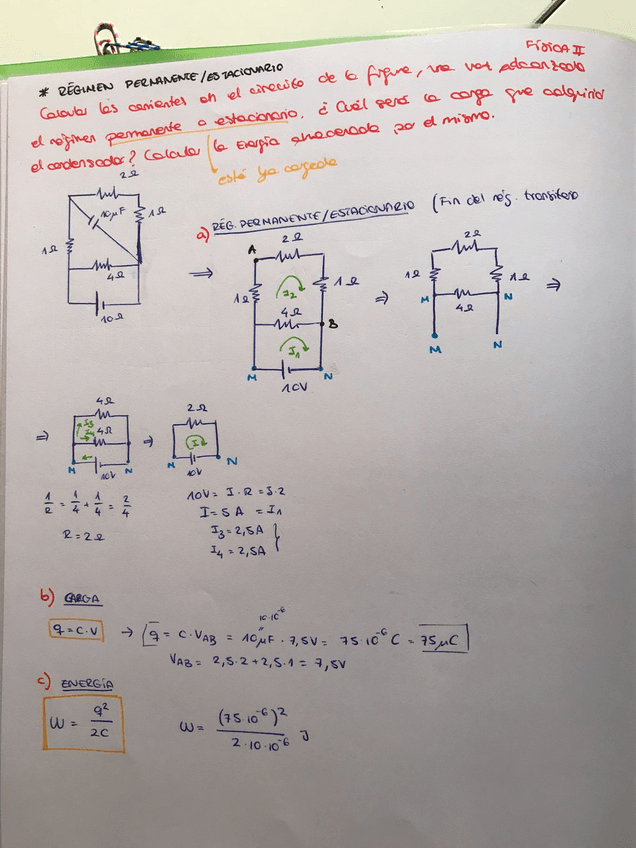 FÍSICA II
* RÉGIMEN PERMANENTE/ESTACIONARIO
Calcular las corrientes en el circuito de la figura, una vez alcanzado
el régimen permanente o estacionario. ¿Cuál será la carga que adquirirá
el condensador? Calcular la Energía almacenada por el mismo.
está ya cargado
2Ω
10μF
1Ω
1Ω
4Ω
10Ω
a) RÉG. PERMANENTE/ESTACIONARIO (Fin del rég. transitorio
A
2Ω
1Ω
I2
1Ω
4Ω
B
I1
M
N
10V
⇒
2Ω
1Ω
1Ω
M
4Ω
N
M
N
⇒
⇒
⇒
4Ω
I3
I4
4Ω
M
10V
N
⇒
2Ω
I
M
10V
N
1/R = 1/4 + 1/4 = 2/4
R = 2Ω
10V = I·R = I·2
I = 5A = I1
I3 = 2,5A
I4 = 2,5A
b) CARGA
10·10^-6
q = C·V → q = C·VAB = 10μF · 7,5V = 75·10^-6 C = 75μC
VAB = 2,5·2 + 2,5·1 = 7,5V
c) ENERGÍA
W = q²/2C
W = (75·10^-6)²/2·10·10^-6 J